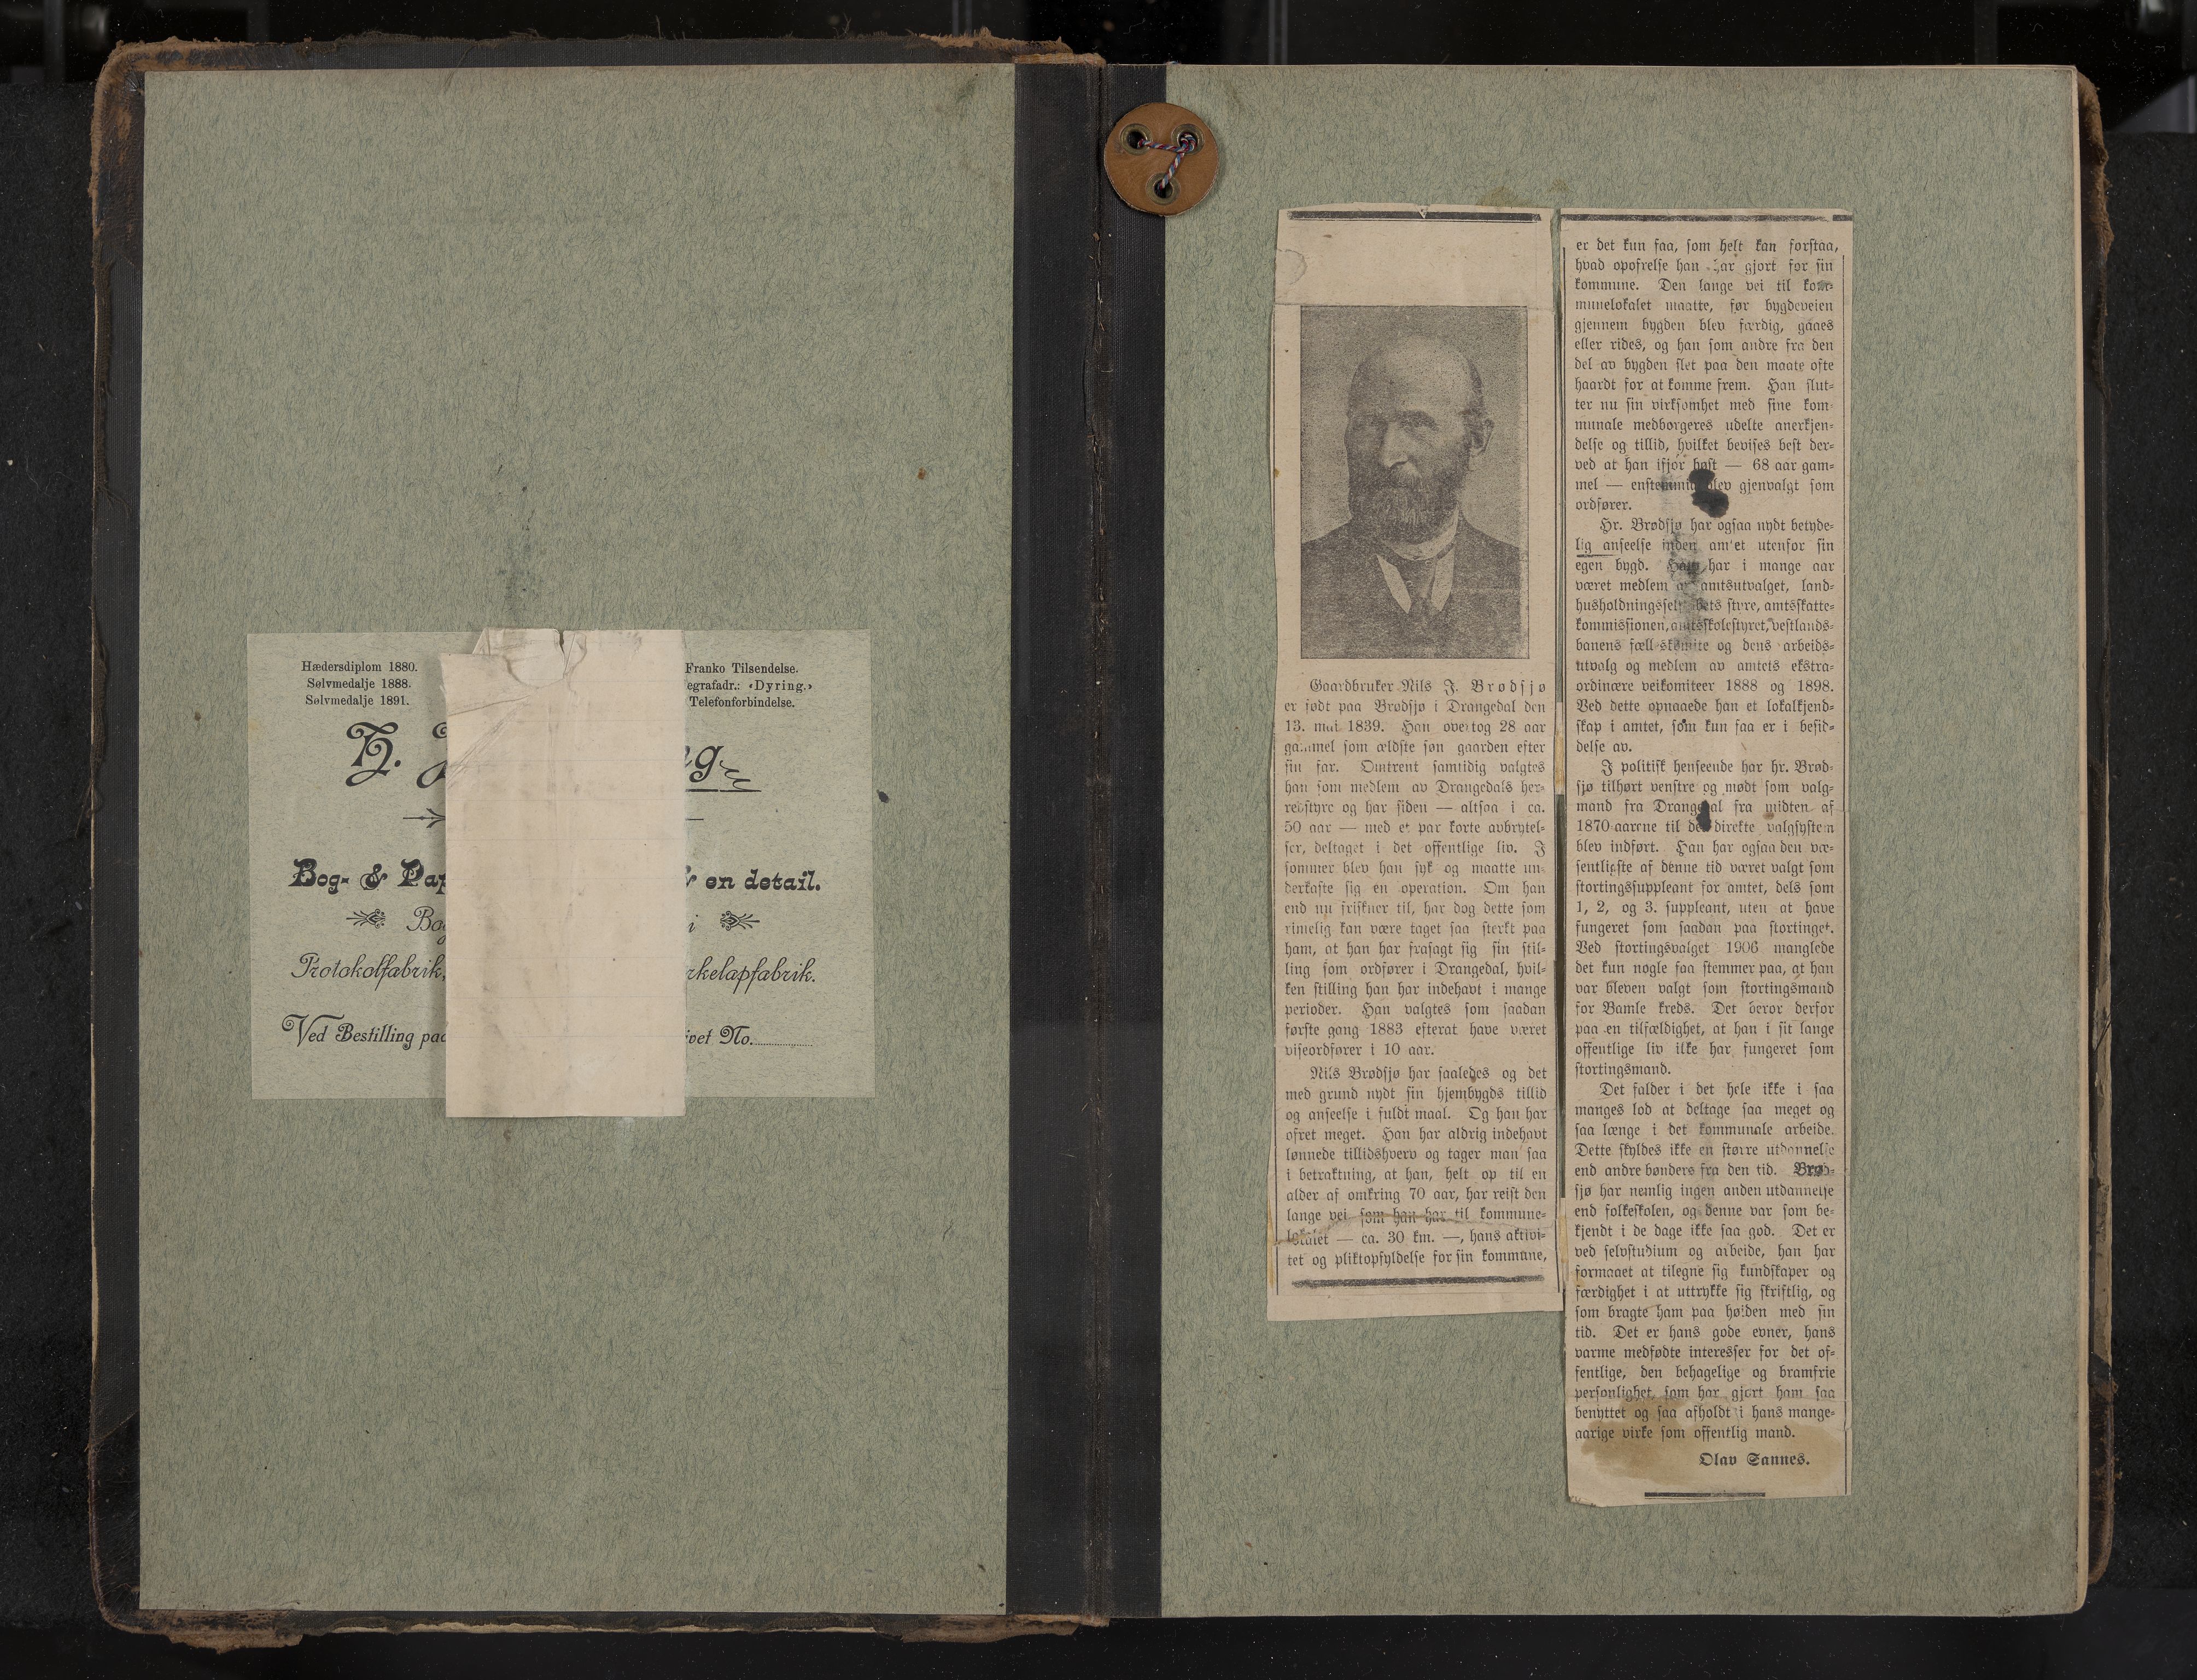 Hædersdiplom 1880.
Sølvmedalje 1888.
Sølvmedalje 1891.
Franko Tilsendelse.
egrafadr.: «Dyring.»
Telefonforbindelse.
H.
Bog- & Pap
& en detail.
Bog
i
Protokolfabrik.
rkelapfabrik.
Ved Bestilling paa
ivet No.
Gaardbruker Nils J. Brødsjø
er født paa Brødsjø i Drangedal den
13. mai 1839. Han overtog 28 aar
gammel som ældste søn gaarden efter
sin far. Omtrent samtidig valgtes
han som medlem av Drangedals her-
redsstyre og har siden — altsaa i ca.
50 aar — med et par korte avbrytel-
ser, deltaget i det offentlige liv. I
sommer blev han syk og maatte un-
derkaste sig en operation. Om han
end nu friskner til, har dog dette som
rimelig kan være taget saa sterkt paa
ham, at han har frasagt sig sin stil-
ling som ordfører i Drangedal, hvil-
ken stilling han har indehavt i mange
perioder. Han valgtes som saadan
første gang 1883 efterat have været
viseordfører i 10 aar.
Nils Brødsjø har saaledes og det
med grund nydt sin hjembygds tillid
og anseelse i fuldt maal. Og han har
ofret meget. Han har aldrig indehavt
lønnede tillidshverv og tager man saa
i betraktning, at han, helt op til en
alder af omkring 70 aar, har reist den
lange vei som han har til kommune-
lokalet — ca. 30 km. —, hans aktivi-
tet og pliktopfyldelse for sin kommune,
er det kun faa, som helt kan forstaa,
hvad opofrelse han har gjort for sin
kommune. Den lange vei til kom-
munelokalet maatte, før bygdeveien
gjennem bygden blev færdig, gaaes
eller rides, og han som andre fra den
del av bygden slet paa den maate ofte
haardt for at komme frem. Han slut-
ter nu sin virksomhet med sine kom-
munale medborgeres udelte anerkjen-
delse og tillid, hvilket bevises best der-
ved at han ifjor høst — 68 aar gam-
mel — enstemmig blev gjenvalgt som
ordfører.
Hr. Brødsjø har ogsaa nydt betyde-
lig anseelse inden amtet utenfor sin
egen bygd. Han har i mange aar
været medlem av amtsutvalget, land-
husholdningsselskabets styre, amtsskatte-
kommissionen, amtsskolestyret, vestlands-
banens fællskomite og dens arbeids-
utvalg og medlem av amtets ekstra-
ordinære veikomiteer 1888 og 1898.
Ved dette opnaaede han et lokalkjend-
skap i amtet, som kun faa er i besid-
delse av.
I politisk henseende har hr. Brød-
sjø tilhørt venstre og mødt som valg-
mand fra Drangedal fra midten af
1870-aarene til det direkte valgsystem
blev indført. Han har ogsaa den væ-
sentligste af denne tid været valgt som
stortingssuppleant for amtet, dels som
1, 2, og 3. suppleant, uten at have
fungeret som saadan paa stortinget.
Ved stortingsvalget 1906 manglede
det kun nogle faa stemmer paa, at han
var bleven valgt som stortingsmand
for Bamle kreds. Det beror derfor
paa en tilfældighet, at han i sit lange
offentlige liv ikke har fungeret som
stortingsmand.
Det falder i det hele ikke i saa
manges lod at deltage saa meget og
saa længe i det kommunale arbeide.
Dette skyldes ikke en større utdannelse
end andre bønders fra den tid. Brød-
sjø har nemlig ingen anden utdannelse
end folkeskolen, og denne var som be-
kjendt i de dage ikke saa god. Det er
ved selvstudium og arbeide, han har
formaaet at tilegne sig kundskaper og
færdighet i at uttrykke sig skriftlig, og
som bragte ham paa høiden med sin
tid. Det er hans gode evner, hans
varme medfødte interesser for det of-
fentlige, den behagelige og bramfrie
personlighet som har gjort ham saa
benyttet og saa afholdt i hans mange-
aarige virke som offentlig mand.
Olav Sannes.